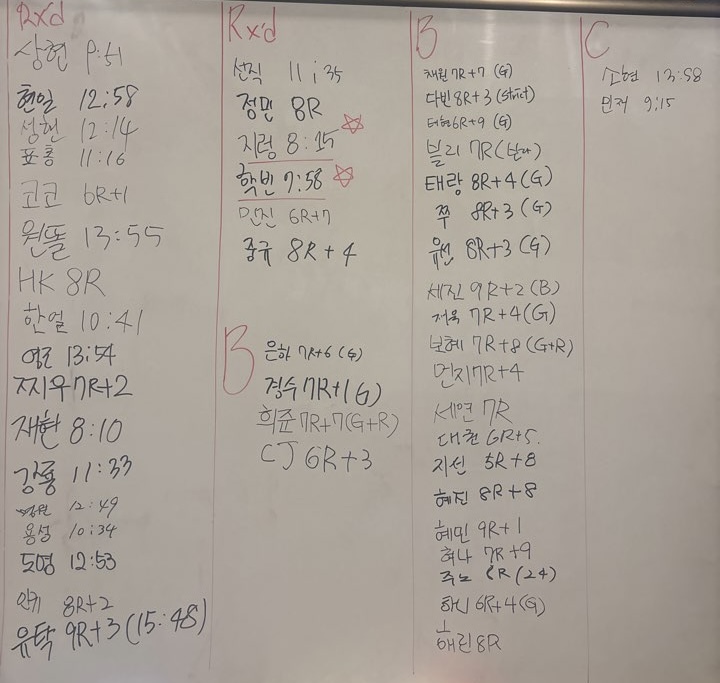 Rx'd
상현 9:51
현일 12:58
성현 12:14
표홍 11:16
코코 6R+1
원똘 13:55
HK 8R
한얼 10:41
영조 13:54
찌우 7R+2
재현 8:10
강룡 11:33
12:49
용성 10:34
도영 12:53
8R+2
유탁 9R+3 (15:48)
Rx'd
선직 11:35
정민 8R
지렁 8:15
학빈 7:58
민진 6R+7
중규 8R+4
B
은하 7R+6 (G)
경수 7R+1 G)
희준 7R+7 (G+R)
CJ 6R+3
B
채원 7R+7 (G)
다빈 8R+3 (strict)
태현 6R+9 (G)
블리 7R
태랑 8R+4 (G)
쭈 8R+3 (G)
유선 8R+3 (G)
세진 9R+2 (B)
저욱 7R+4 (G)
보혜 7R+8 (G+R)
먼지 7R+4
세연 7R
대천 6R+5.
지선 5R+8
혜진 8R+8
혜민 9R+1
허나 7R+9
주노 8R (24)
하니 6R+4 (G)
해린 8R
C
소현 13:58
민저 9:15